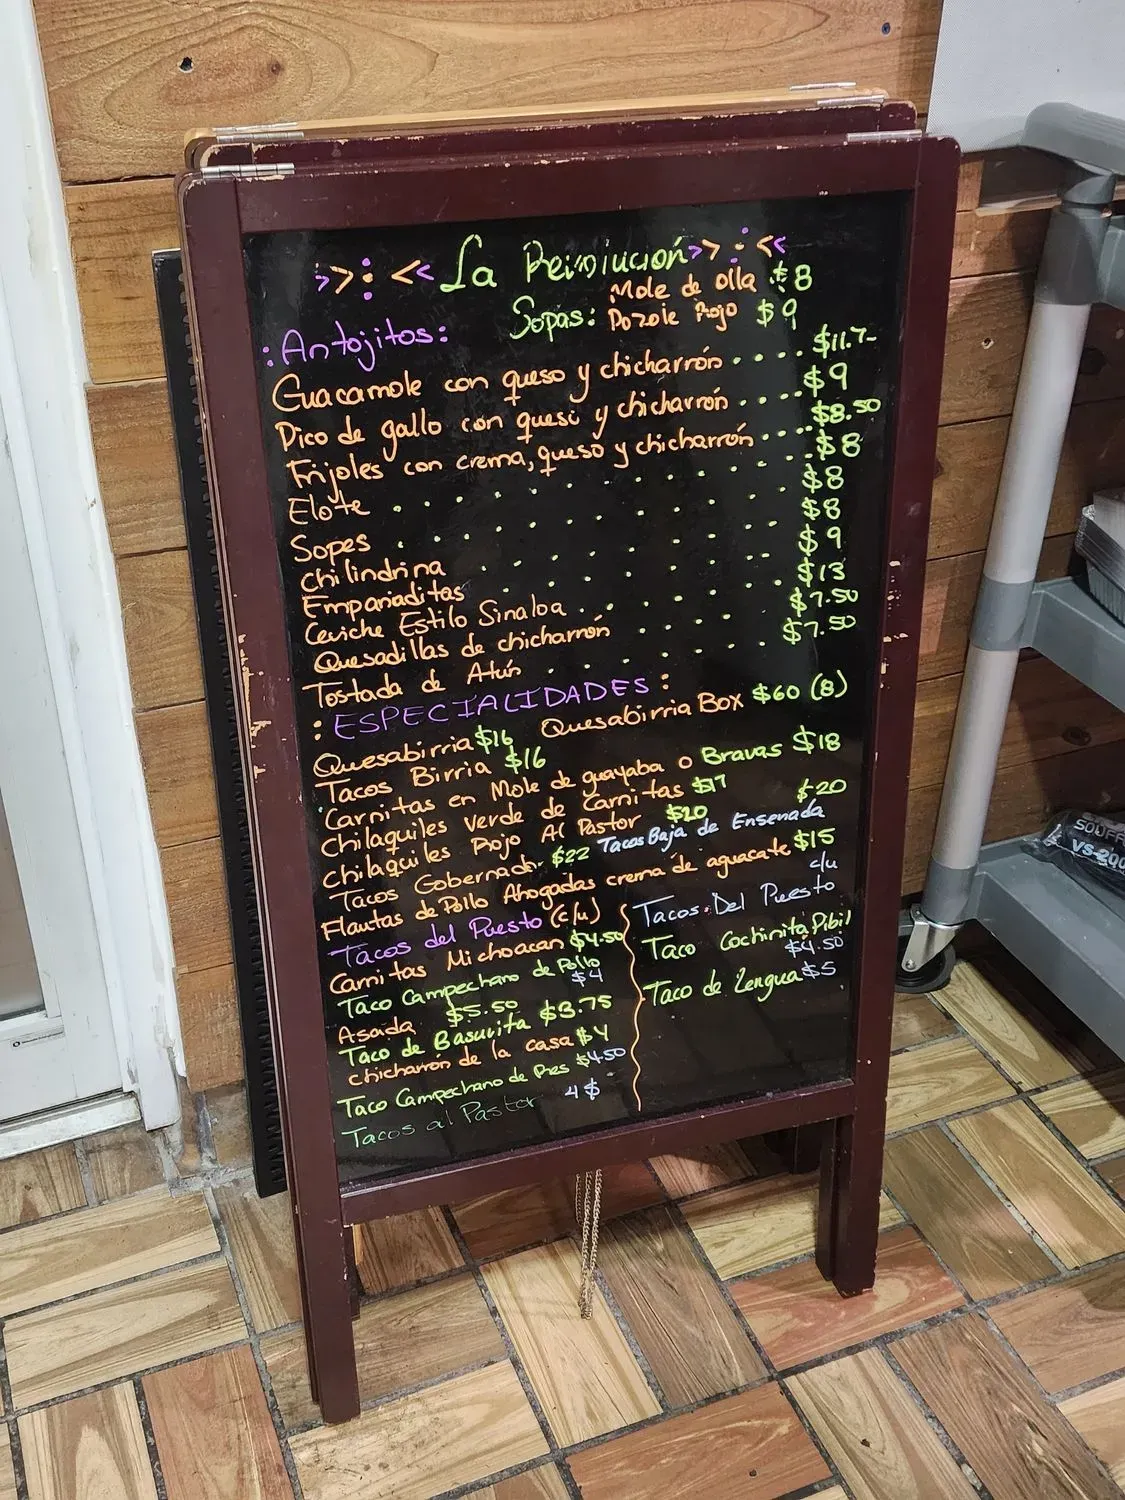 La Revolución
Sopas: Mole de olla $8
Pozole Rojo $9
:Antojitos:
Guacamole con queso y chicharrón.... $11.7-
Pico de gallo con queso y chicharrón.... $9
Frijoles con crema, queso y chicharrón... $8.50
Elote $8
Sopes $8
chilindrina $8
Empanaditas $9
Ceviche Estilo Sinaloa $13
Quesadillas de chicharrón $7.50
Tostada de Atún $7.50
: ESPECIALIDADES :
Quesabirria $16 Quesabirria Box $60 (8)
Tacos Birria $16
Carnitas en Mole de guayaba o Bravas $18
Chilaquiles verde de Carnitas $17
Chilaquiles Rojo Al Pastor $20
Tacos $22 Tacos Baja de Ensenada $20
Flautas de Pollo Ahogadas crema de aguacate $15
Tacos del Puesto (c/u)
Carnitas Michoacan $4.50
Taco Campechano de Pollo $4
Asada $5.50
Taco de Basurita $3.75
chicharrón de la casa $4
Taco Campechano de Res $4.50
Tacos al Pastor 4$
Tacos Del Puesto c/u
Taco Cochinita Pibil $4.50
Taco de Lengua $5
SOUFF
VS-200